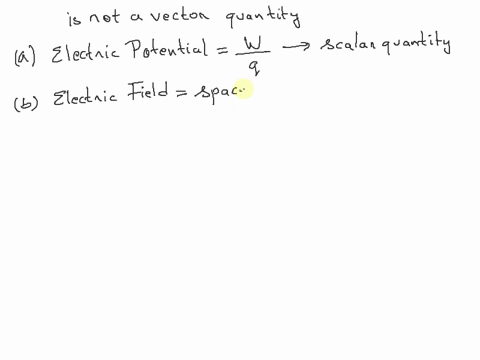 is not a vector quantity
(a) Electric Potential = W/q → scalar quantity
(b) Electric Field = spac